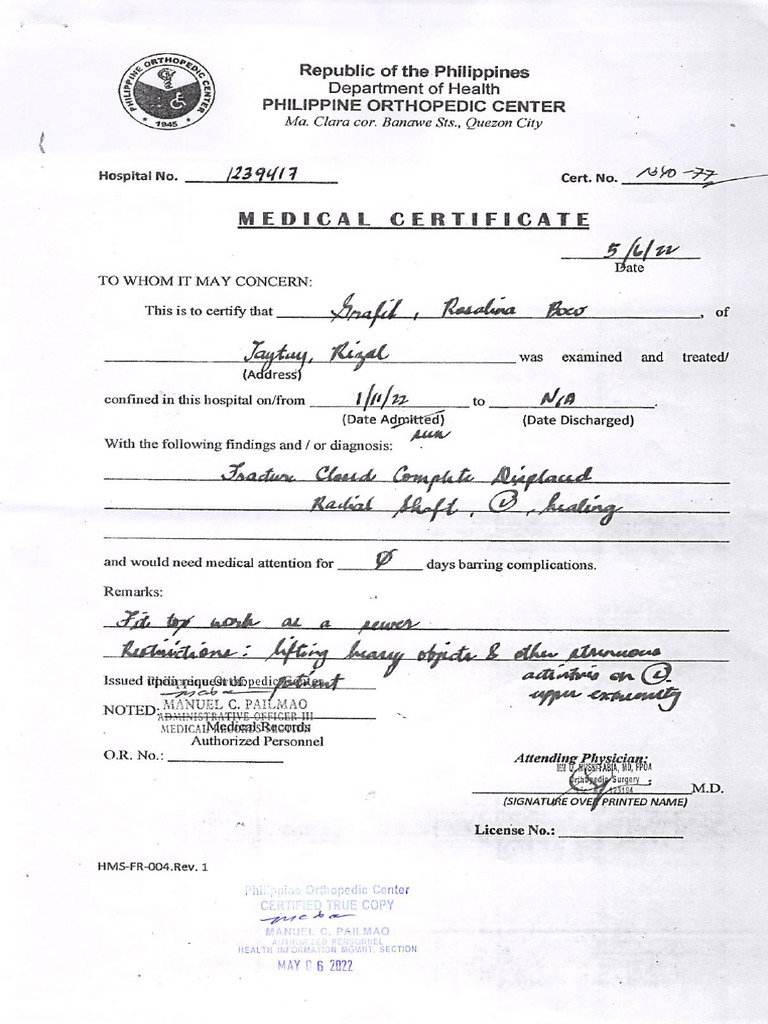 PHILIPPINE ORTHOPEDIC CENTER
1945
Republic of the Philippines
Department of Health
PHILIPPINE ORTHOPEDIC CENTER
Ma. Clara cor. Banawe Sts., Quezon City
Hospital No. 1239417 Cert. No.
MEDICAL CERTIFICATE
5/6/22
Date
TO WHOM IT MAY CONCERN:
This is to certify that Grafil, Rosalina Boco, of
Taytay, Rizal was examined and treated/
(Address)
confined in this hospital on/from 1/11/22 to N/A.
(Date Admitted) (Date Discharged)
seen
With the following findings and / or diagnosis:
Fracture Closed Complete Displaced
Radial Shaft, (L), healing
and would need medical attention for 0 days barring complications.
Remarks:
Fit to work as a sewer
Restrictions: lifting heavy objects & other strenuous
activities on (L)
upper extremity
Issued upon request of: patient
NOTED: MANUEL C. PAILMAO
ADMINISTRATIVE OFFICER III
MEDICAL RECORDS SECTION
Medical Records
Authorized Personnel
O.R. No.:
Attending Physician:
MD, FPOA
Orthopedic Surgery
M.D.
(SIGNATURE OVER PRINTED NAME)
License No.:
HMS-FR-004.Rev. 1
Philippine Orthopedic Center
CERTIFIED TRUE COPY
MANUEL C. PAILMAO
AUTHORIZED PERSONNEL
HEALTH INFORMATION MGMNT. SECTION
MAY 06 2022